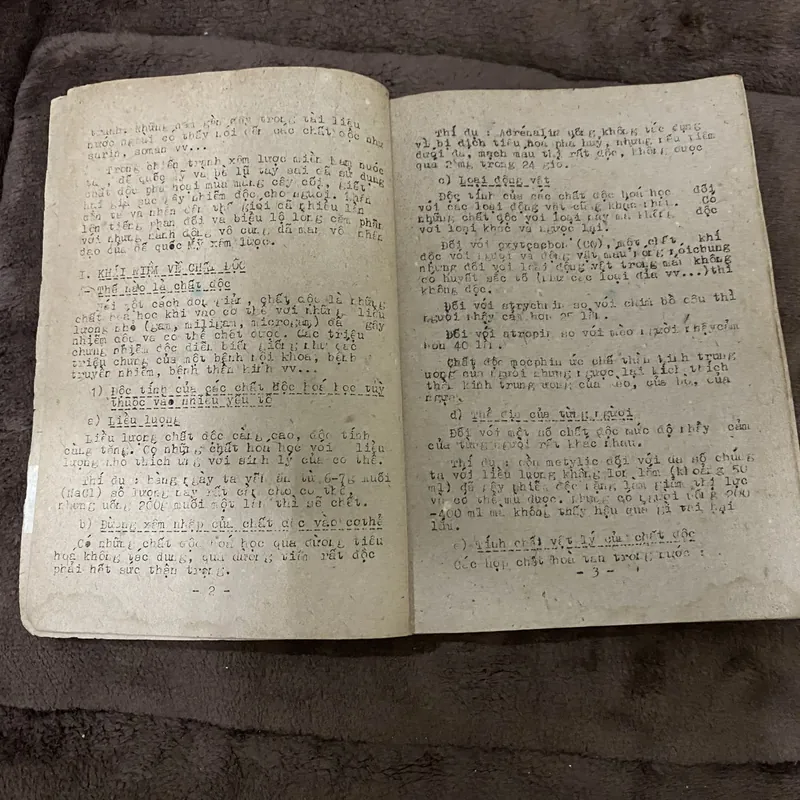 tranh. Những năm gần đây trong tài liệu
nước ngoài có thấy nói đến các chất độc như
sarin, soman vv...
Trong chiến tranh xâm lược miền Nam nước
ta, đế quốc Mỹ và bè lũ tay sai đã sử dụng
chất độc phá hoại mùa màng cây cối, giết
hại gia súc gây nhiễm độc cho người. Nhân
dân ta và nhân dân thế giới đã nhiều lần
lên tiếng phản đối và biểu lộ lòng căm phẫn
với những hành động vô cùng dã man vô nhân
đạo của đế quốc Mỹ xâm lược.
I. KHÁI NIỆM VỀ CHẤT ĐỘC
Thế nào là chất độc
Nói một cách đơn giản, chất độc là những
chất hoá học khi vào cơ thể với những liều
lượng nhỏ (gam, miligam, microgam) đã gây
nhiễm độc và có thể chết được. Các triệu
chứng nhiễm độc diễn biến giống như các
triệu chứng của một bệnh nội khoa, bệnh
truyền nhiễm, bệnh thần kinh vv...
1) Độc tính của các chất độc hoá học tuỳ
thuộc vào nhiều yếu tố
a) Liều lượng
Liều lượng chất độc càng cao, độc tính
càng tăng. Có những chất hoá học với liều
lượng nhỏ thích ứng với sinh lý của cơ thể.
Thí dụ: hàng ngày ta vẫn ăn từ 6-7g muối
(NaCl) số lượng này rất cần cho cơ thể,
nhưng uống 200g muối một lần thì sẽ chết.
b) Đường xâm nhập của chất độc vào cơ thể
Có những chất độc hoá học qua đường tiêu
hoá không tác dụng, qua đường tiêm rất độc
phải hết sức thận trọng.
- 2 -
Thí dụ : Adrénalin uống không tác dụng
vì bị dịch tiêu hoá phá huỷ, nhưng nếu tiêm
dưới da, mạch máu thì rất độc, không được
quá 2mg trong 24 giờ.
c) Loại động vật
Độc tính của các chất độc hoá học đối
với các loại động vật cũng khác nhau. Có
những chất độc với loại này mà không độc
với loại khác và ngược lại.
Đối với oxytcacbon (CO), một chất khí
độc với người và động vật máu nóng nói chung
nhưng đối với loài động vật trong máu không
có huyết sắc tố (như các loại đỉa vv...) thì
không độc.
Đối với strychin so với chim bồ câu thì
người nhậy cảm hơn 25 lần.
Đối với atropin so với mèo người nhậy cảm
hơn 40 lần.
Chất độc moocphin ức chế thần kinh trung
ương của người nhưng ngược lại kích thích
thần kinh trung ương của mèo, của bò, của
ngựa.
d) Thể địa của từng người
Đối với một số chất độc mức độ nhậy cảm
của từng người rất khác nhau.
Thí dụ : cồn metylic đối với đa số chúng
ta với liều lượng không lớn lắm (khoảng 50
ml) đã gây nhiễm độc nặng làm giảm thị lực
và có thể mù được. Nhưng có người uống 200
-400 ml mà không thấy hậu quả gì tai hại
lắm.
e) Tính chất vật lý của chất độc
Các hợp chất hoà tan trong nước :
- 3 -